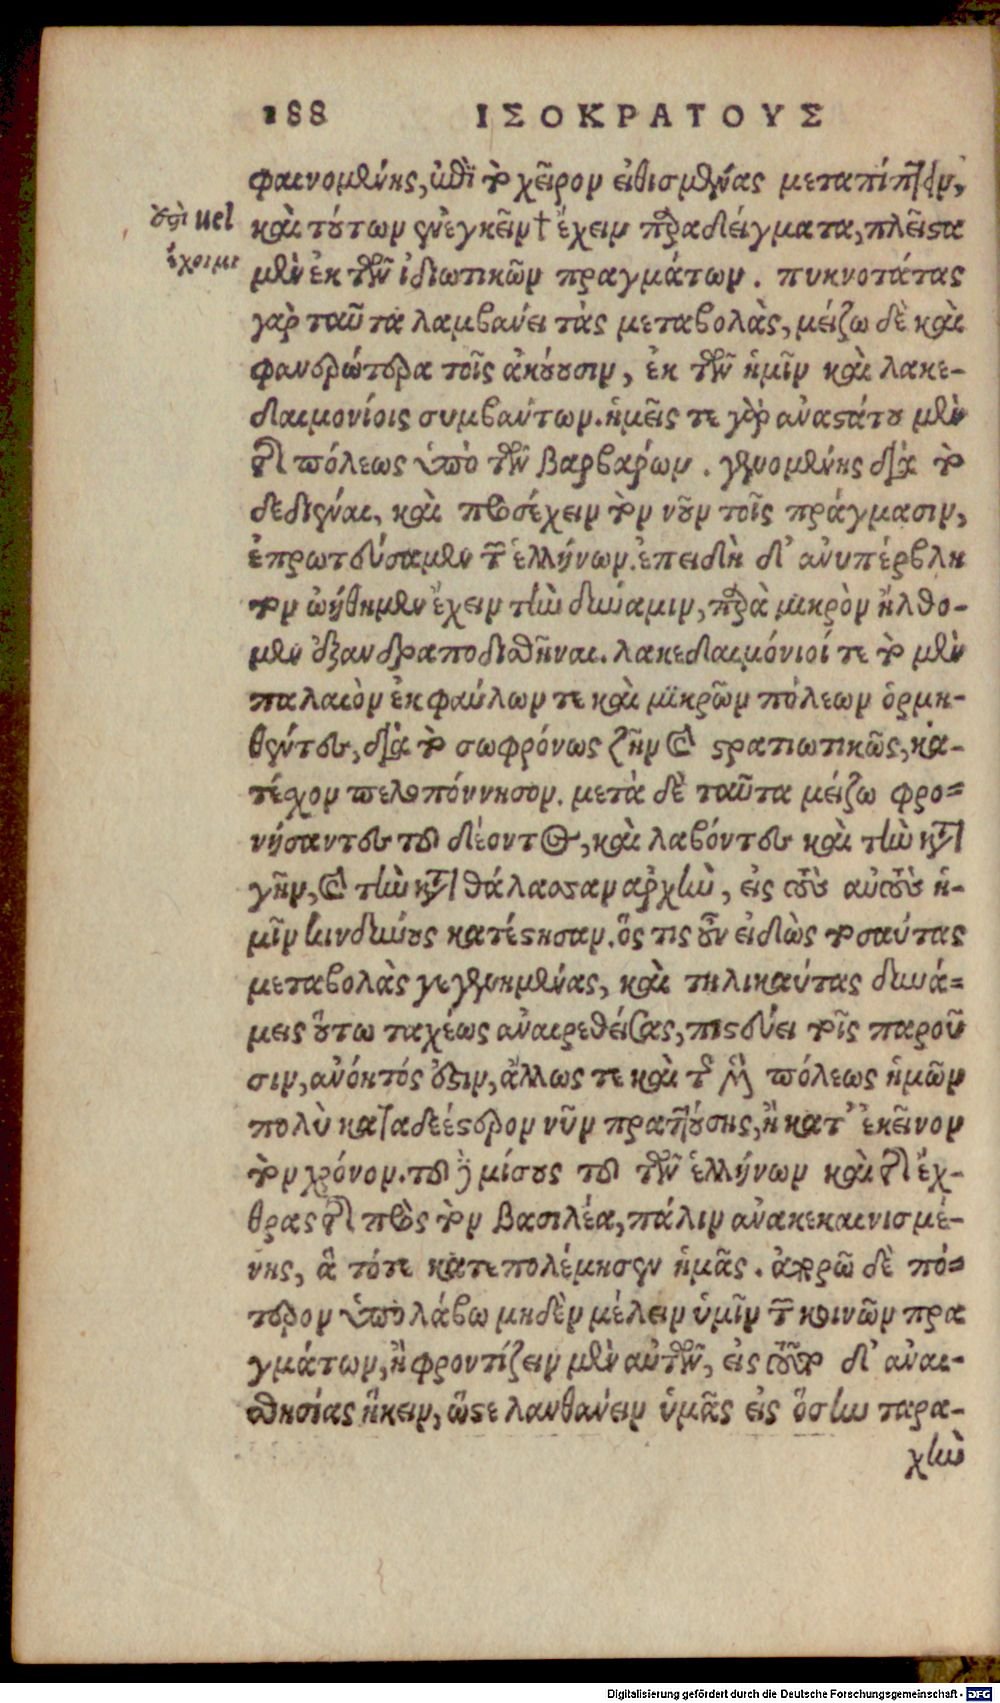 188 ΙΣΟΚΡΑΤΟΥΣ
φαινομένης, ἐπὶ τὸ χεῖρον εἰθισμένας μεταπίπτειν,
ἐστὶ uel
καὶ τούτων ἐνεγκεῖν† ἔχειν παραδείγματα, πλεῖστα
ἔχοιμι
μὲν ἐκ τῶν ἰδιωτικῶν πραγμάτων. πυκνοτάτας
γὰρ ταῦτα λαμβάνει τὰς μεταβολὰς, μείζω δὲ καὶ
φανερώτερα τοῖς ἀκούουσιν, ἐκ τῶν ἡμῖν καὶ λακε-
δαιμονίοις συμβάντων. ἡμεῖς τε γὰρ ἀναστάτου μὲν
τῆς πόλεως ὑπὸ τῶν βαρβάρων. γενομένης διὰ τὸ
δεδιέναι, καὶ προσέχειν τὸν νοῦν τοῖς πράγμασιν,
ἐπρωτεύσαμεν τῶν ἑλλήνων. ἐπειδὴ δ' ἀνυπέρβλη
τον ᾠήθημεν ἔχειν τὴν δύναμιν, παρὰ μικρὸν ἤλθο-
μεν ἐξανδραποδισθῆναι. λακεδαιμόνιοί τε τὸ μὲν
παλαιὸν ἐκ φαύλων τε καὶ μικρῶν πόλεων ὁρμη-
θέντες, διὰ τὸ σωφρόνως ζῆν καὶ στρατιωτικῶς, κα-
τέχον πελοπόννησον. μετὰ δὲ ταῦτα μείζω φρο-
νήσαντες τοῦ δέοντος, καὶ λαβόντες καὶ τὴν κατὰ
γῆν, καὶ τὴν κατὰ θάλασσαν ἀρχὴν, εἰς τοὺς αὐτοὺς ἡ-
μῖν κινδύνους κατέστησαν. ὅς τις οὖν εἰδὼς τοσαύτας
μεταβολὰς γεγενημένας, καὶ τηλικαύτας δυνά-
μεις οὕτω ταχέως ἀναιρεθείσας, πιστεύει τοῖς παροῦ
σιν, ἀνόητός ἐστιν, ἄλλως τε καὶ τῆς μὲν πόλεως ἡμῶν
πολὺ καταδεέστερον νῦν πραττούσης, ἢ κατ' ἐκεῖνον
τὸν χρόνον. τοῦ δὲ μίσους τοῦ τῶν ἑλλήνων καὶ τῆς ἔχ-
θρας τῆς πρὸς τὸν βασιλέα, πάλιν ἀνακεκαινισμέ-
νης, ἃ τότε κατεπολέμησεν ἡμᾶς. ἀπορῶ δὲ πό-
τερον ὑπολάβω μηδὲν μέλειν ὑμῖν τῶν κοινῶν πρα
γμάτων, ἢ φροντίζειν μὲν αὐτῶν, εἰς τοῦτο δ' ἀναι-
σθησίας ἥκειν, ὥστε λανθάνειν ὑμᾶς εἰς ὅσην ταρα-
χὴν
Digitalisierung gefördert durch die Deutsche Forschungsgemeinschaft - DFG